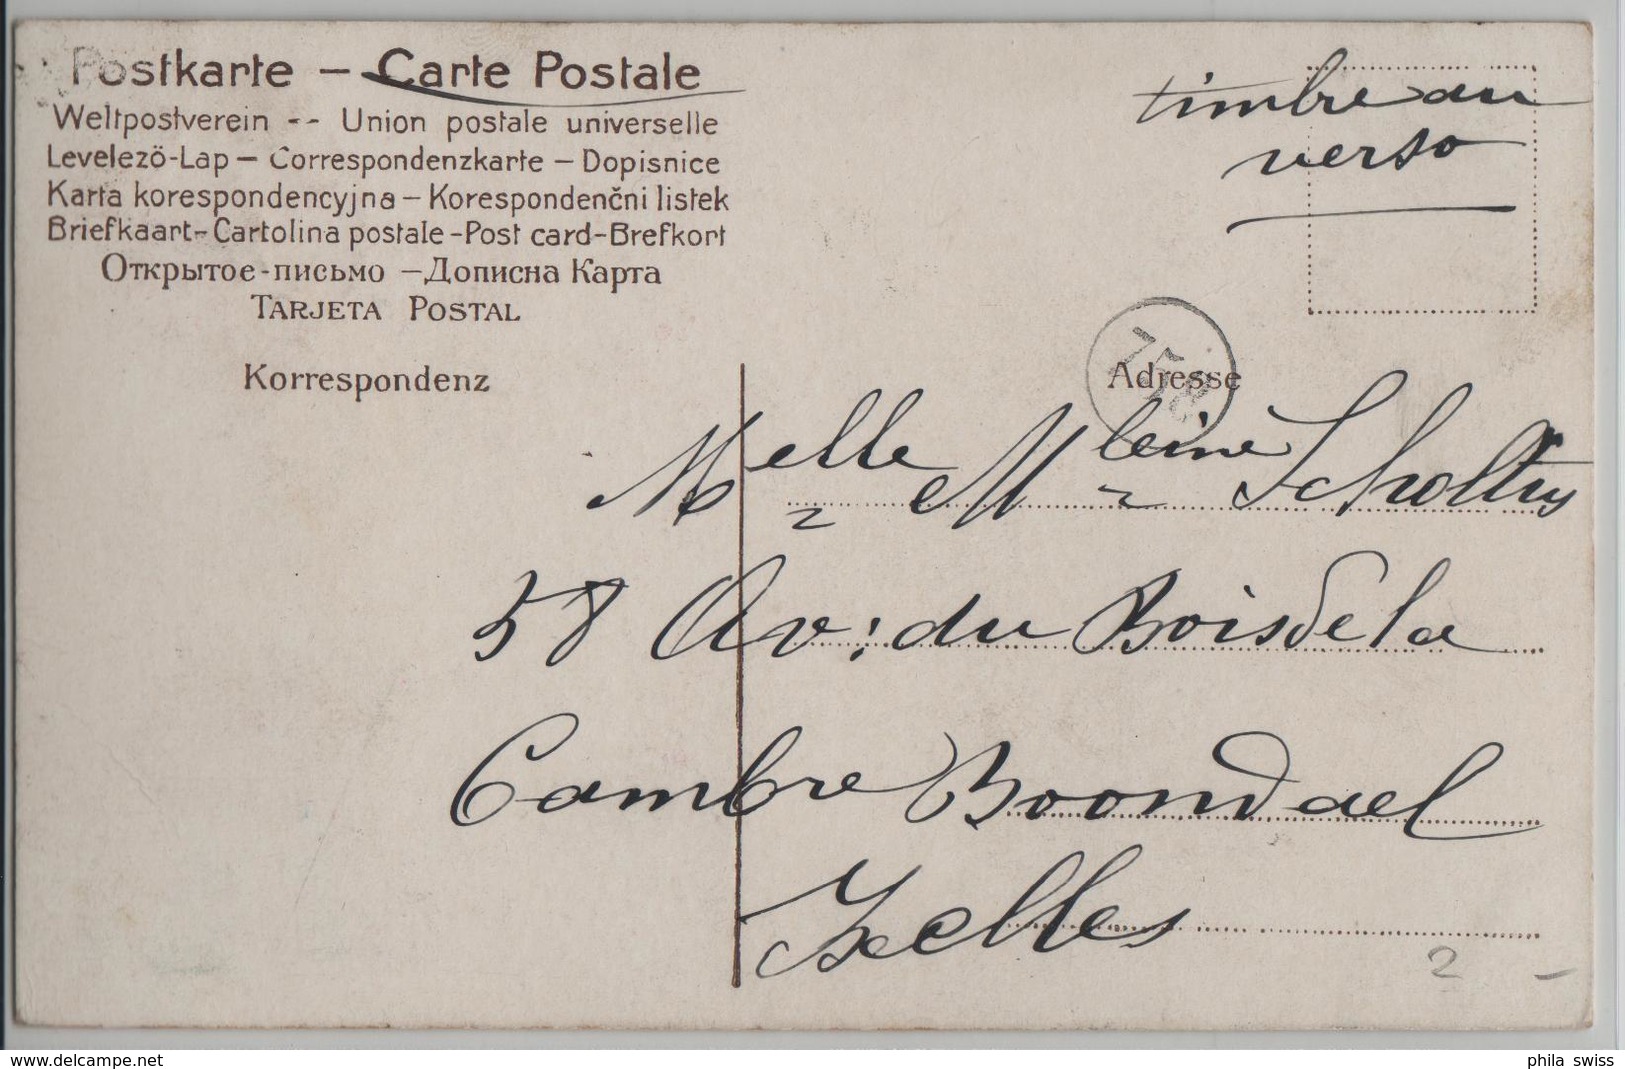 Postkarte – Carte Postale
Weltpostverein -- Union postale universelle
Levelezö-Lap – Correspondenzkarte – Dopisnice
Karta korespondencyjna – Korespondenčni listek
Briefkaart - Cartolina postale - Post card - Brefkort
Открытое-письмо – Дописна Карта
TARJETA POSTAL
timbre au
verso
Korrespondenz
Adresse
Melle Mleine Scholtus
58 Av: du Bois de la
Cambre Boondael
Ixelles
2 -
www.delcampe.net
phila_swiss